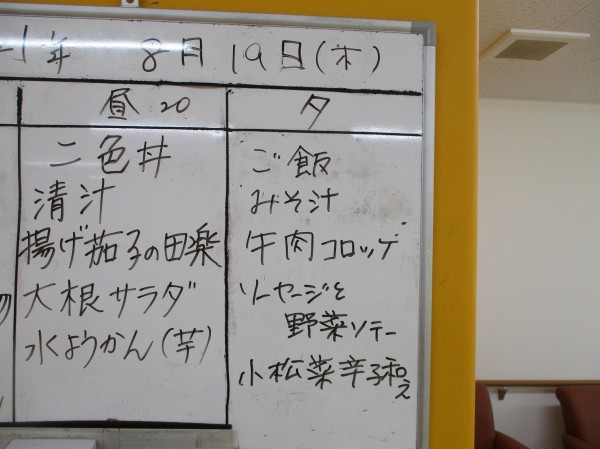 21年 8月19日(木)
昼20
夕
二色丼
清汁
揚げ茄子の田楽
大根サラダ
水ようかん(芋)
ご飯
みそ汁
牛肉コロッケ
ソーセージと
野菜ソテー
小松菜辛子和え